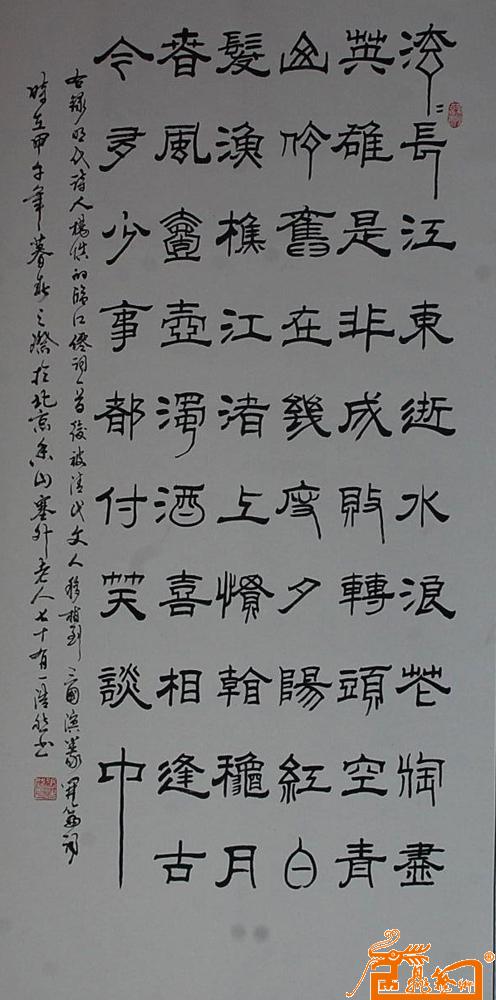 滚〻長江東逝水浪花淘盡
英雄是非成敗轉頭空青
山依舊在幾度夕陽紅白
髮漁樵江渚上慣看穐月
春風壹壺濁酒喜相逢古
今多少事都付笑談中
右録明代詩人楊慎的臨江僊詞一首後被清代文人移植到三國演義開篇詞
時在甲午年暮秋之際於北京香山塞外老人七十有一書